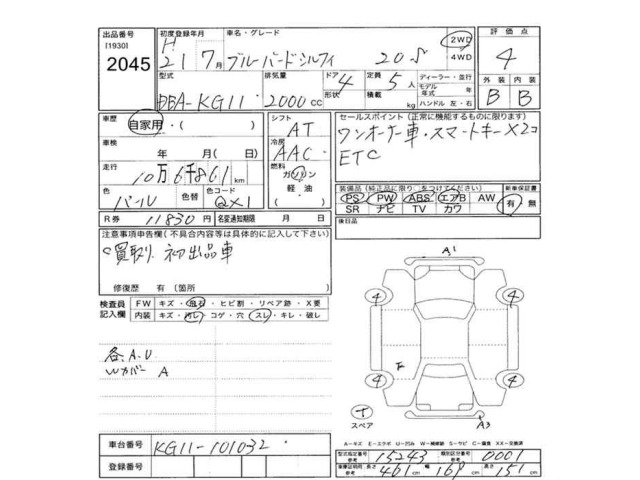 出品番号 [1930] 2045
初度登録年月 H 21年 7月
車名・グレード ブルーバードシルフィ 20S
2WD 4WD
評価点 4
型式 DBA-KG11
排気量 2000 CC
ドア 形状 4
定員 5人 積載 kg
ディーラー・並行
モデル年式 年
ハンドル 左・右
外装 内装
B B
車歴 自家用・( )
シフト AT
セールスポイント(正常に機能するものに限ります)
ワンオーナー車・スマートキーX2コ
ETC
車検 年 月( 日)
冷房 AAC
走行 10万6千861 km
燃料 ガソリン 軽油 ( )
色 パール 色替 色コード QX1
装備品(純正品に限り○をつけてください) 新車保証書
PS PW ABS エアB AW 有・無
SR ナビ TV カワ
R券 11830円 名変通知期限 月 日
後日品
注意事項申告欄(不具合内容等は具体的に記入して下さい)
買取り 初出品車
修復歴 有(箇所 )
検査員記入欄 FW キズ・飛石・ヒビ割・リペア跡・X要
内装 キズ・汚レ・コゲ・穴・スレ・キレ・破レ
各A.U
Wカバー A
A1
4 4
4 4
A3
スペア
A-キズ E-エクボ U-凹み W-補修跡 S-サビ C-腐食 XX-交換済
車台番号 KG11-101032
登録番号
型式指定番号 参考 15243 類別区分番号 参考 0001
車検証明用 参考 長さ 461 cm 幅 169 cm 高さ 151 cm